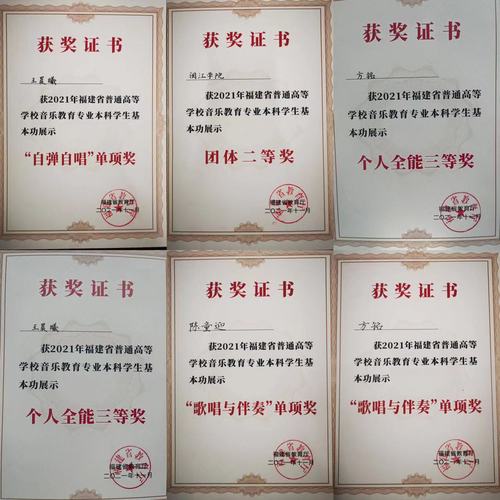 获奖证书
王晨曦
获2021年福建省普通高等
学校音乐教育专业本科学生基
本功展示
“自弹自唱”单项奖
福建省教育厅
二〇二一年十一月
获奖证书
闽江学院
获2021年福建省普通高等
学校音乐教育专业本科学生基
本功展示
团体二等奖
福建省教育厅
二〇二一年十一月
获奖证书
方韬
获2021年福建省普通高等
学校音乐教育专业本科学生基
本功展示
个人全能三等奖
福建省教育厅
二〇二一年十一月
获奖证书
王晨曦
获2021年福建省普通高等
学校音乐教育专业本科学生基
本功展示
个人全能三等奖
福建省教育厅
二〇二一年十一月
获奖证书
陈童迎
获2021年福建省普通高等
学校音乐教育专业本科学生基
本功展示
“歌唱与伴奏”单项奖
福建省教育厅
二〇二一年十一月
获奖证书
方韬
获2021年福建省普通高等
学校音乐教育专业本科学生基
本功展示
“歌唱与伴奏”单项奖
福建省教育厅
二〇二一年十一月